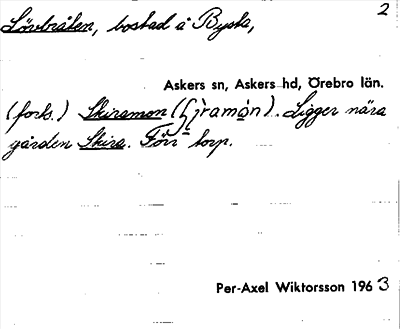 2
Lövbråten, bostad å Bysta,
Askers sn, Askers hd, Örebro län.
(forts.) Skiramon ( ). Ligger nära
gården Skira. Förr torp.
Per-Axel Wiktorsson 1963